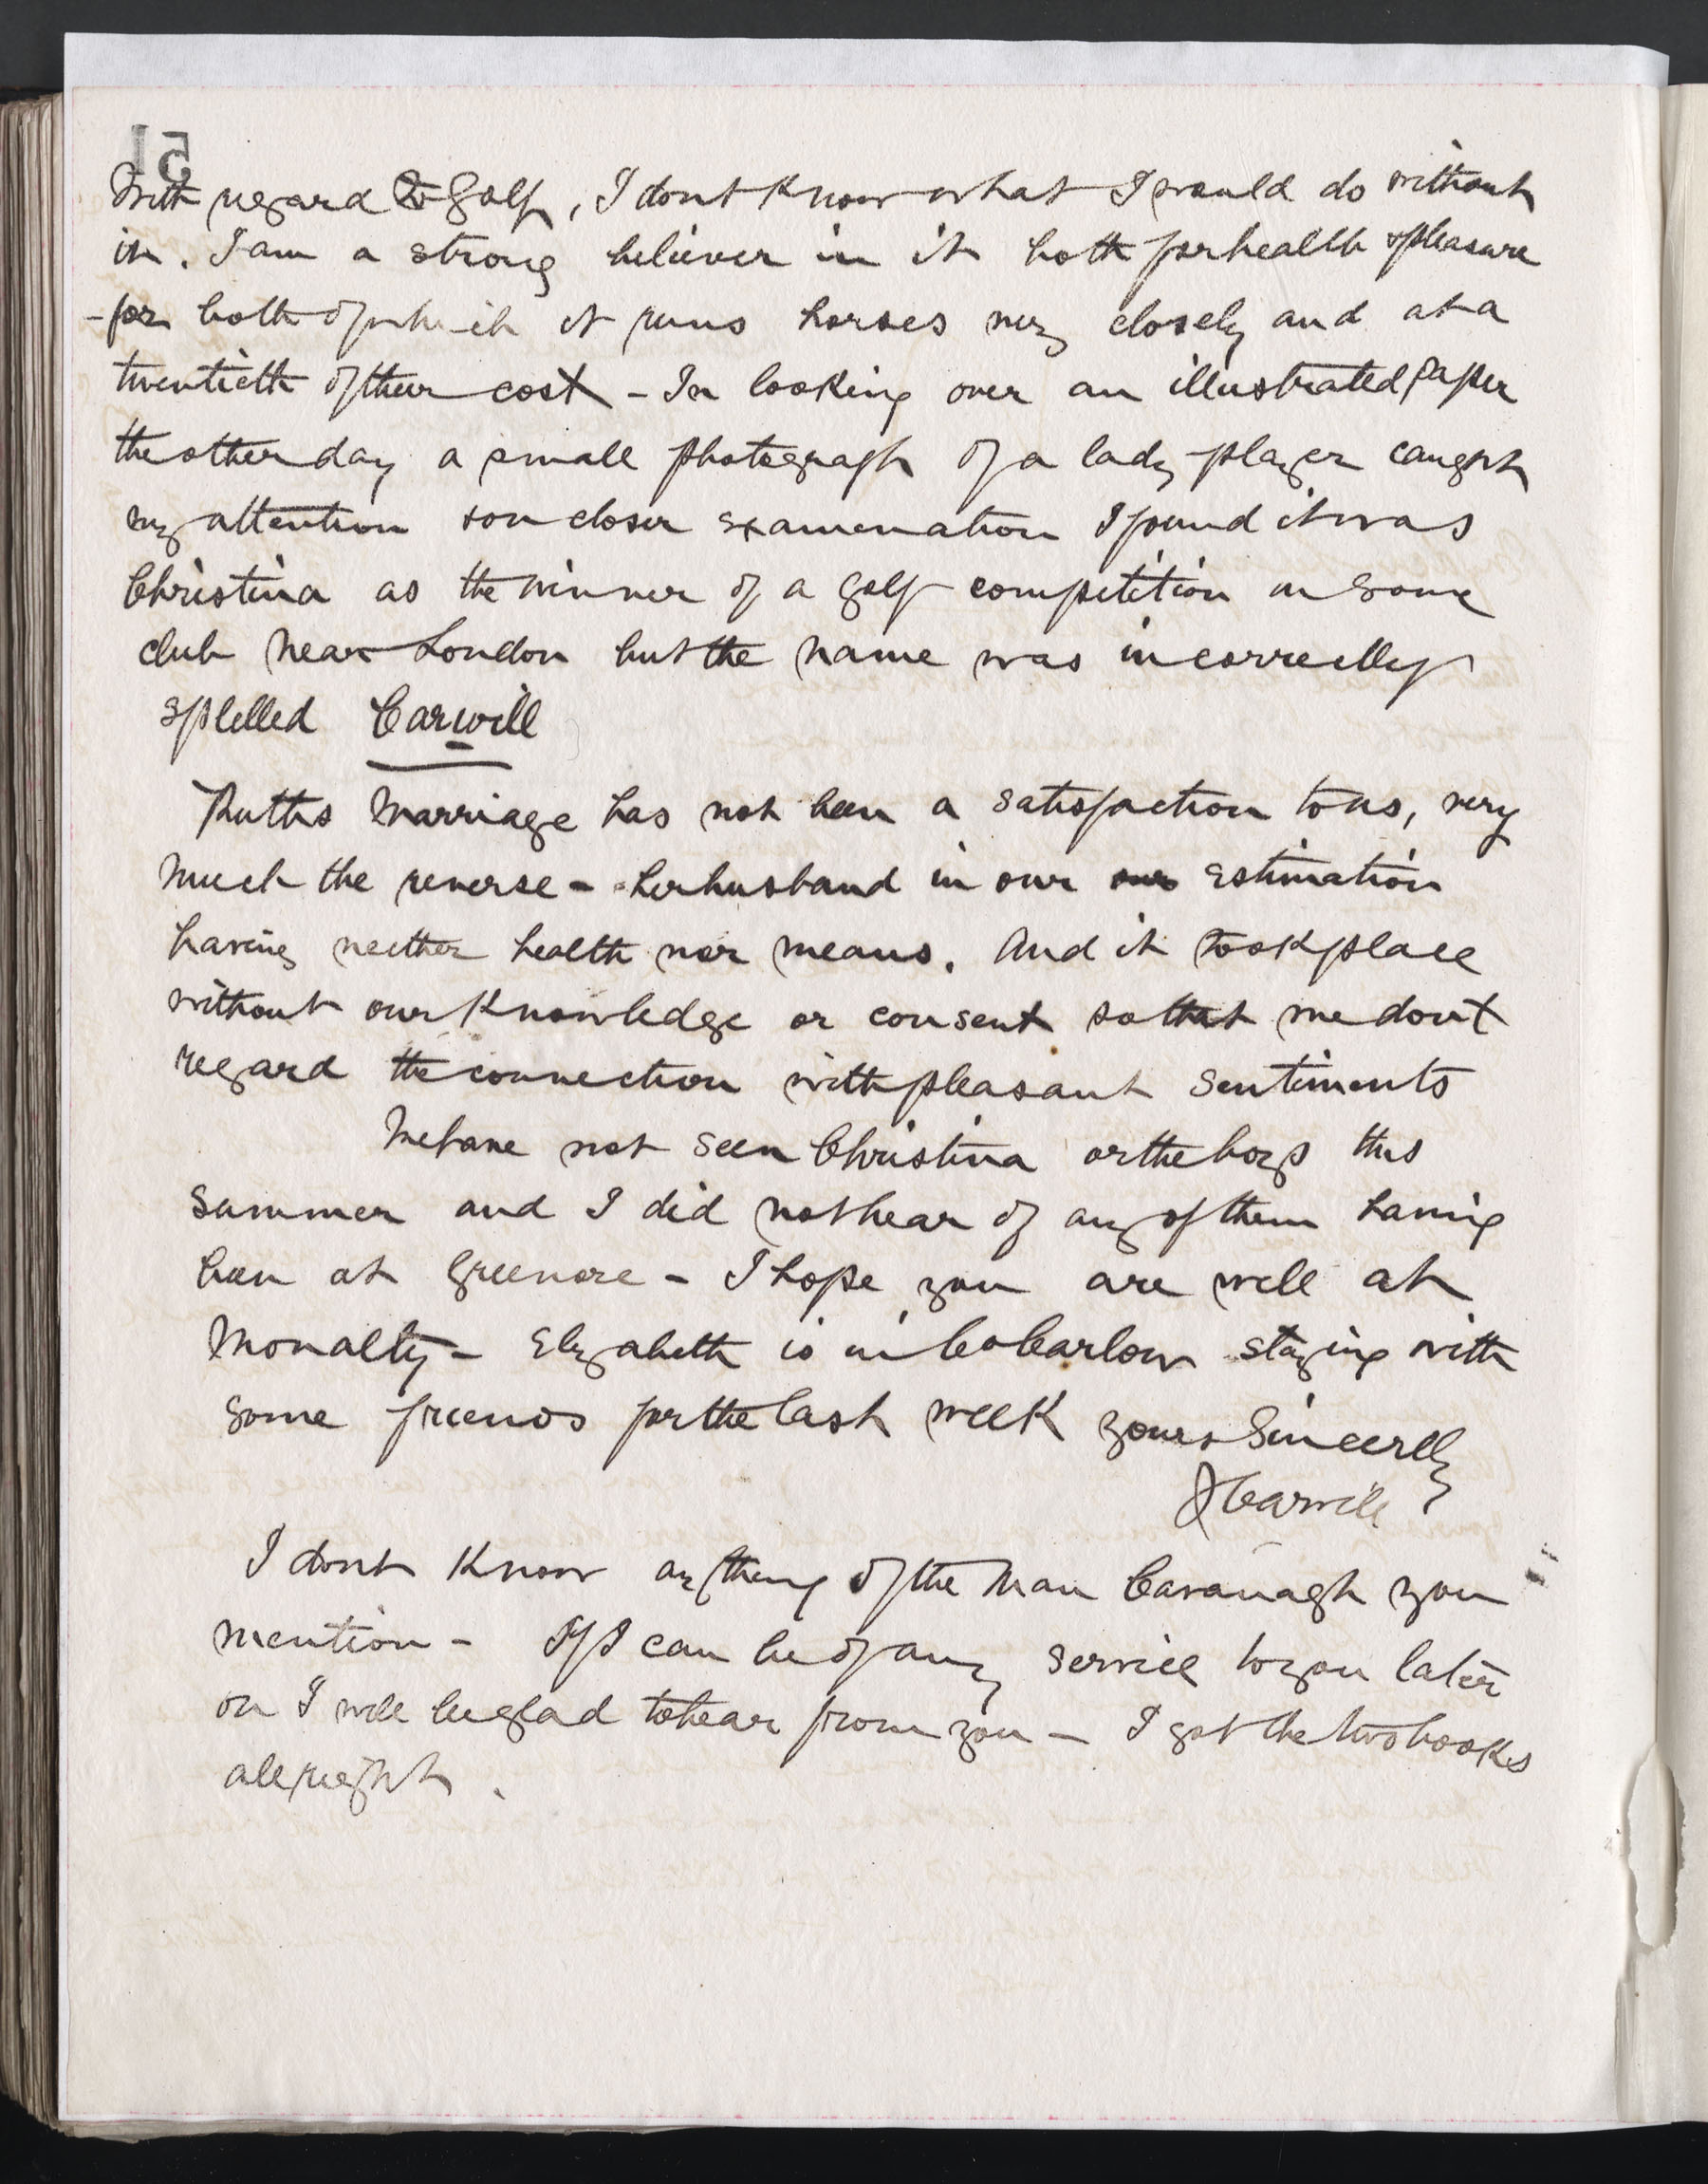 51
With regard to Golf, I dont know what I would do without
it. I am a strong believer in it both for health & pleasure
- for both of which it runs horses very closely and at a
twentieth of their cost - In looking over an illustrated paper
the other day a small photograph of a lady player caught
my attention & on closer examination I found it was
Christina as the winner of a golf competition in some
club near London but the name was incorrectly
splelled Carwill
Ruths marriage has not been a satisfaction to us, very
much the reverse - her husband in our our estimation
having neither health nor means. And it took place
without our knowledge or consent so that we dont
regard the connection with pleasant sentiments
We have not seen Christina or the boys this
summer and I did not hear of any of them having
been at Greenore - I hope you are well at
Monalty - Elizabeth is in Co Carlow staying with
some friends for the last week yours Sincerely
J Carvill
I dont know anything of the man Cavanagh you
mention - If I can be of any service to you later
on I will be glad to hear from you - I got the two books
all right.